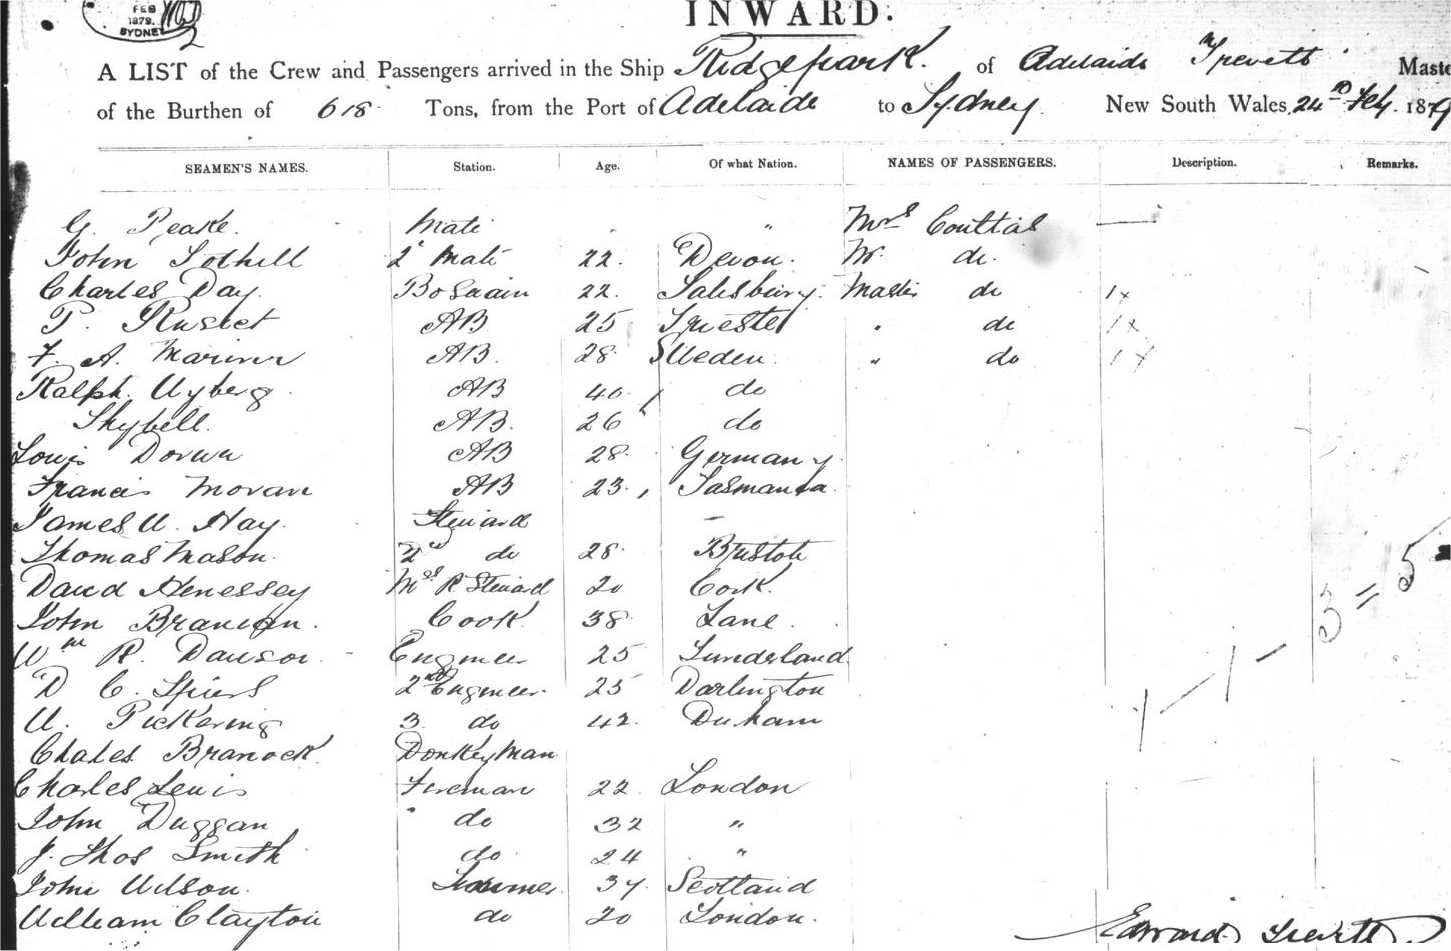 FEB
1879.
SYDNEY
INWARD.
A LIST of the Crew and Passengers arrived in the Ship Ridgepark. of Adelaide Trevett Maste
of the Burthen of 618 Tons, from the Port of Adelaide to Sydney New South Wales, 24th Feby. 1879
SEAMEN'S NAMES. Station. Age. Of what Nation. NAMES OF PASSENGERS. Description. Remarks.
G. Peake. Mate " Mrs Couttas —
John Tothill 2d Mate 22. Devon. Mr. do.
Charles Day. Bosuain 22. Salisbury. Master do 1x
P. Rusict AB 25 Trieste " do 1x
F. A. Mariner AB. 28 Sweden. " do 1x
Ralph. Uyberg AB 40 do
Skybell. AB. 26 do
Louis Dorwa AB 28 Germany.
Francis Moran AB 23. Tasmania.
James W. Hay. Steward
Thomas Mason. 2nd do 28 Bristol
David Henessey Ms R Steward 20 Cork.
John Branion. Cook 38 Lane.
Wm R. Dawson Engineer 25 Sunderland
D C. Spiers 2nd Engineer. 25 Darlington
W. Pickering 3 do 42. Duham
Chales Branock DonkeyMan
Charles Lewis Fireman 22 London
John Duggan do 32 "
J. Thos Smith do 24 "
John Wilson. 34 Scotland
William Clayton do 20 London.
3 = 5
1 — 1 —
Edward Trevett